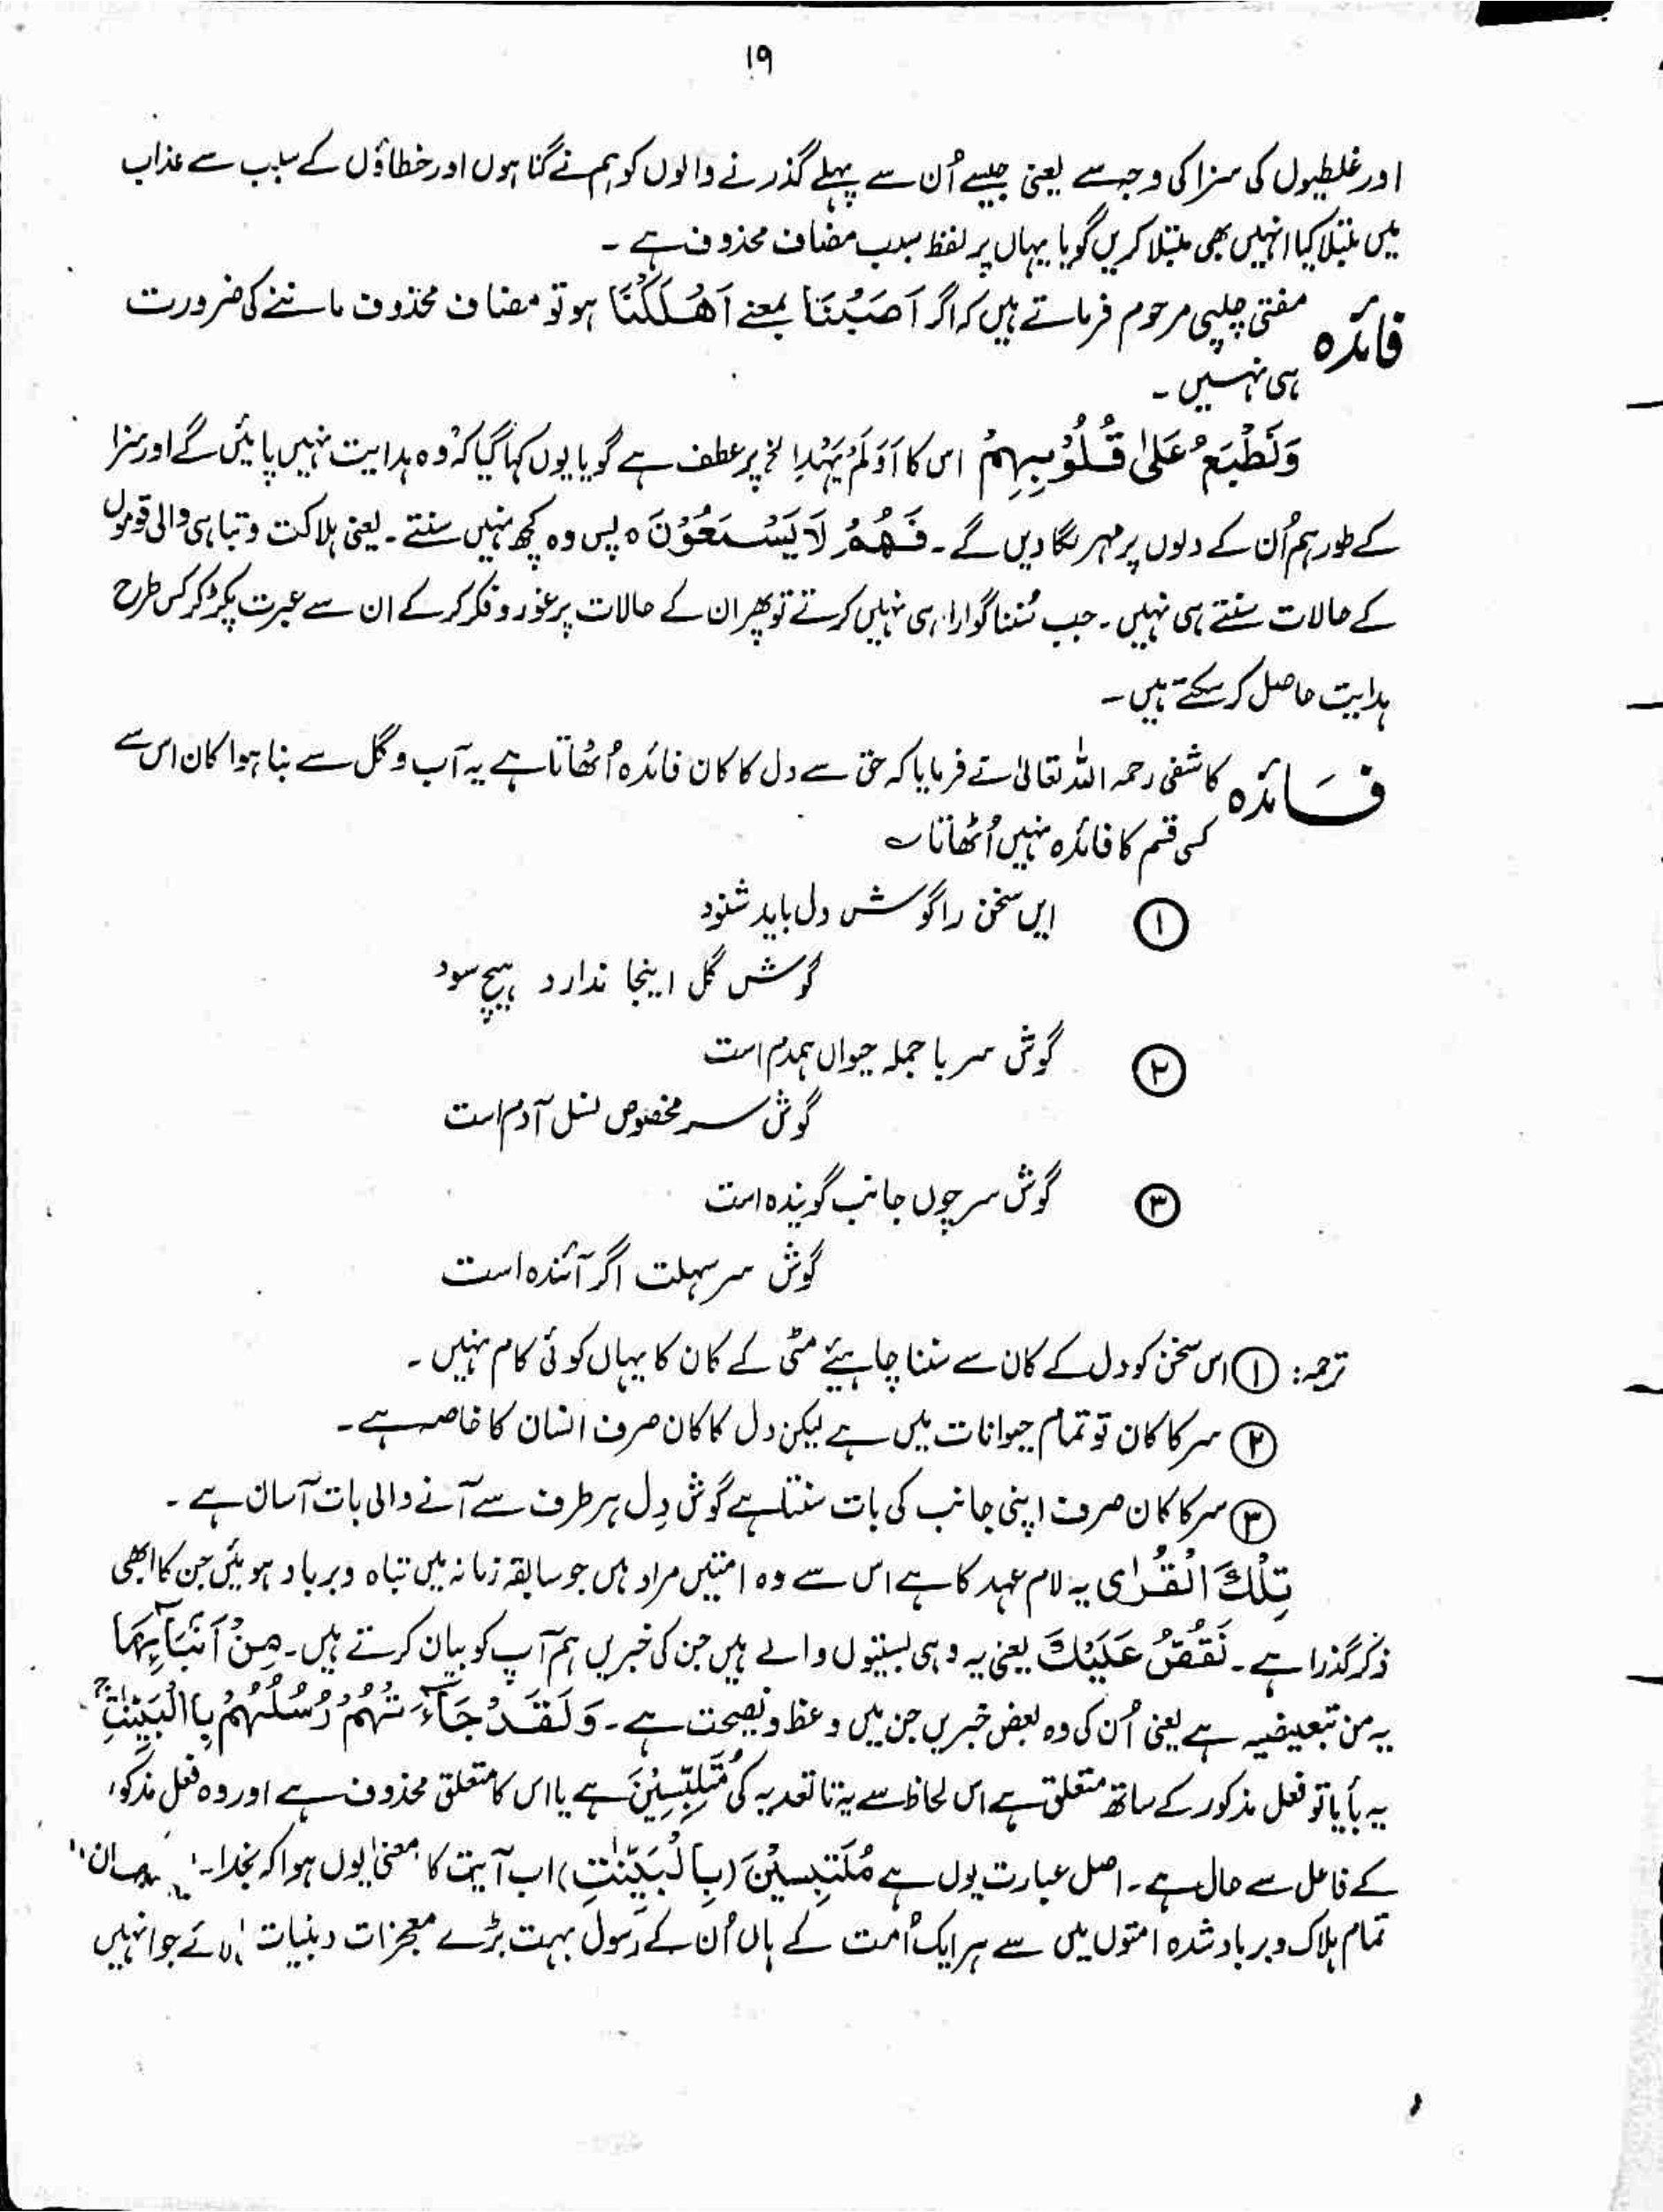 ۱۹
اور غلطیوں کی سزا کی وجہ سے یعنی جیسے اُن سے پہلے گذرنے والوں کو ہم نے گناہوں اور خطاؤں کے سبب سے عذاب
میں مبتلا کیا انہیں بھی مبتلا کریں گویا یہاں پر لفظ سبب مضاف محذوف ہے ۔
فائدہ مفتی چلپی مرحوم فرماتے ہیں کہ اگر اَصَبْنَا بمعنے اَھْلَکْنَا ہو تو مضاف محذوف ماننے کی ضرورت
ہی نہیں ۔
وَنَطْبَعُ عَلٰی قُلُوْبِہِمْ اس کا اَوَلَمْ یَہْدِ الخ پر عطف ہے گویا یوں کہا گیا کہ وہ ہدایت نہیں پائیں گے اور سزا
کے طور ہم اُن کے دلوں پر مہر لگا دیں گے ۔ فَھُمْ لَا یَسْمَعُوْنَ ہ پس وہ کچھ نہیں سنتے ۔ یعنی ہلاکت و تباہی والی قوموں
کے حالات سنتے ہی نہیں ۔ جب سُننا گوارا ہی نہیں کرتے تو پھر ان کے حالات پر غور و فکر کر کے ان سے عبرت پکڑ کر کس طرح
ہدایت حاصل کر سکتے ہیں ۔
فَائدہ کاشفی رحمہ اللہ تعالیٰ نے فرمایا کہ حق سے دل کا کان فائدہ اُٹھاتا ہے یہ آب و گل سے بنا ہوا کان اس سے
کسی قسم کا فائدہ نہیں اُٹھاتا ؎
① ایں سخن را گوش دل باید شنود
گوش گل اینجا ندارد ہیچ سود
② گوش سر با جملہ حیواں ہمدم است
گوش سر مخصوص نسل آدم است
③ گوش سر چوں جانب گویندہ است
گوش سر سہلت اگر آئندہ است
ترجمہ: ① اس سخن کو دل کے کان سے سننا چاہیئے مٹی کے کان کا یہاں کوئی کام نہیں ۔
② سر کا کان تو تمام حیوانات میں ہے لیکن دل کا کان صرف انسان کا خاصہ ہے ۔
③ سر کا کان صرف اپنی جانب کی بات سنتا ہے گوش دِل ہر طرف سے آنے والی بات آسان ہے ۔
تِلْکَ الْقُرٰی یہ لام عہد کا ہے اس سے وہ امتیں مراد ہیں جو سابقہ زمانہ میں تباہ و برباد ہوئیں جن کا ابھی
ذکر گذرا ہے ۔ نَقُصُّ عَلَیْکَ یعنی یہ وہی بستیوں والے ہیں جن کی خبریں ہم آپ کو بیان کرتے ہیں ۔ مِنْ اَنْۢبَآئِہَا
یہ من تبعیضیہ ہے یعنی اُن کی وہ بعض خبریں جن میں وعظ و نصیحت ہے ۔ وَلَقَدْ جَآءَتْہُمْ رُسُلُہُمْ بِاالْبَیِّنٰتِ ج
یہ بأ یا تو فعل مذکور کے ساتھ متعلق ہے اس لحاظ سے یہ تا تعدیہ کی مُتَلَبِّسِیْنَ ہے یا اس کا متعلق محذوف ہے اور وہ فعل مذکور
کے فاعل سے حال ہے ۔ اصل عبارت یوں ہے مُلْتَبِسِیْنَ (بِالْبَیِّنٰتِ) اب آیت کا معنیٰ یوں ہوا کہ بخدا ان
تمام ہلاک و برباد شدہ امتوں میں سے ہر ایک اُمت کے ہاں اُن کے رسول بہت بڑے معجزات و بینات لائے جو انہیں